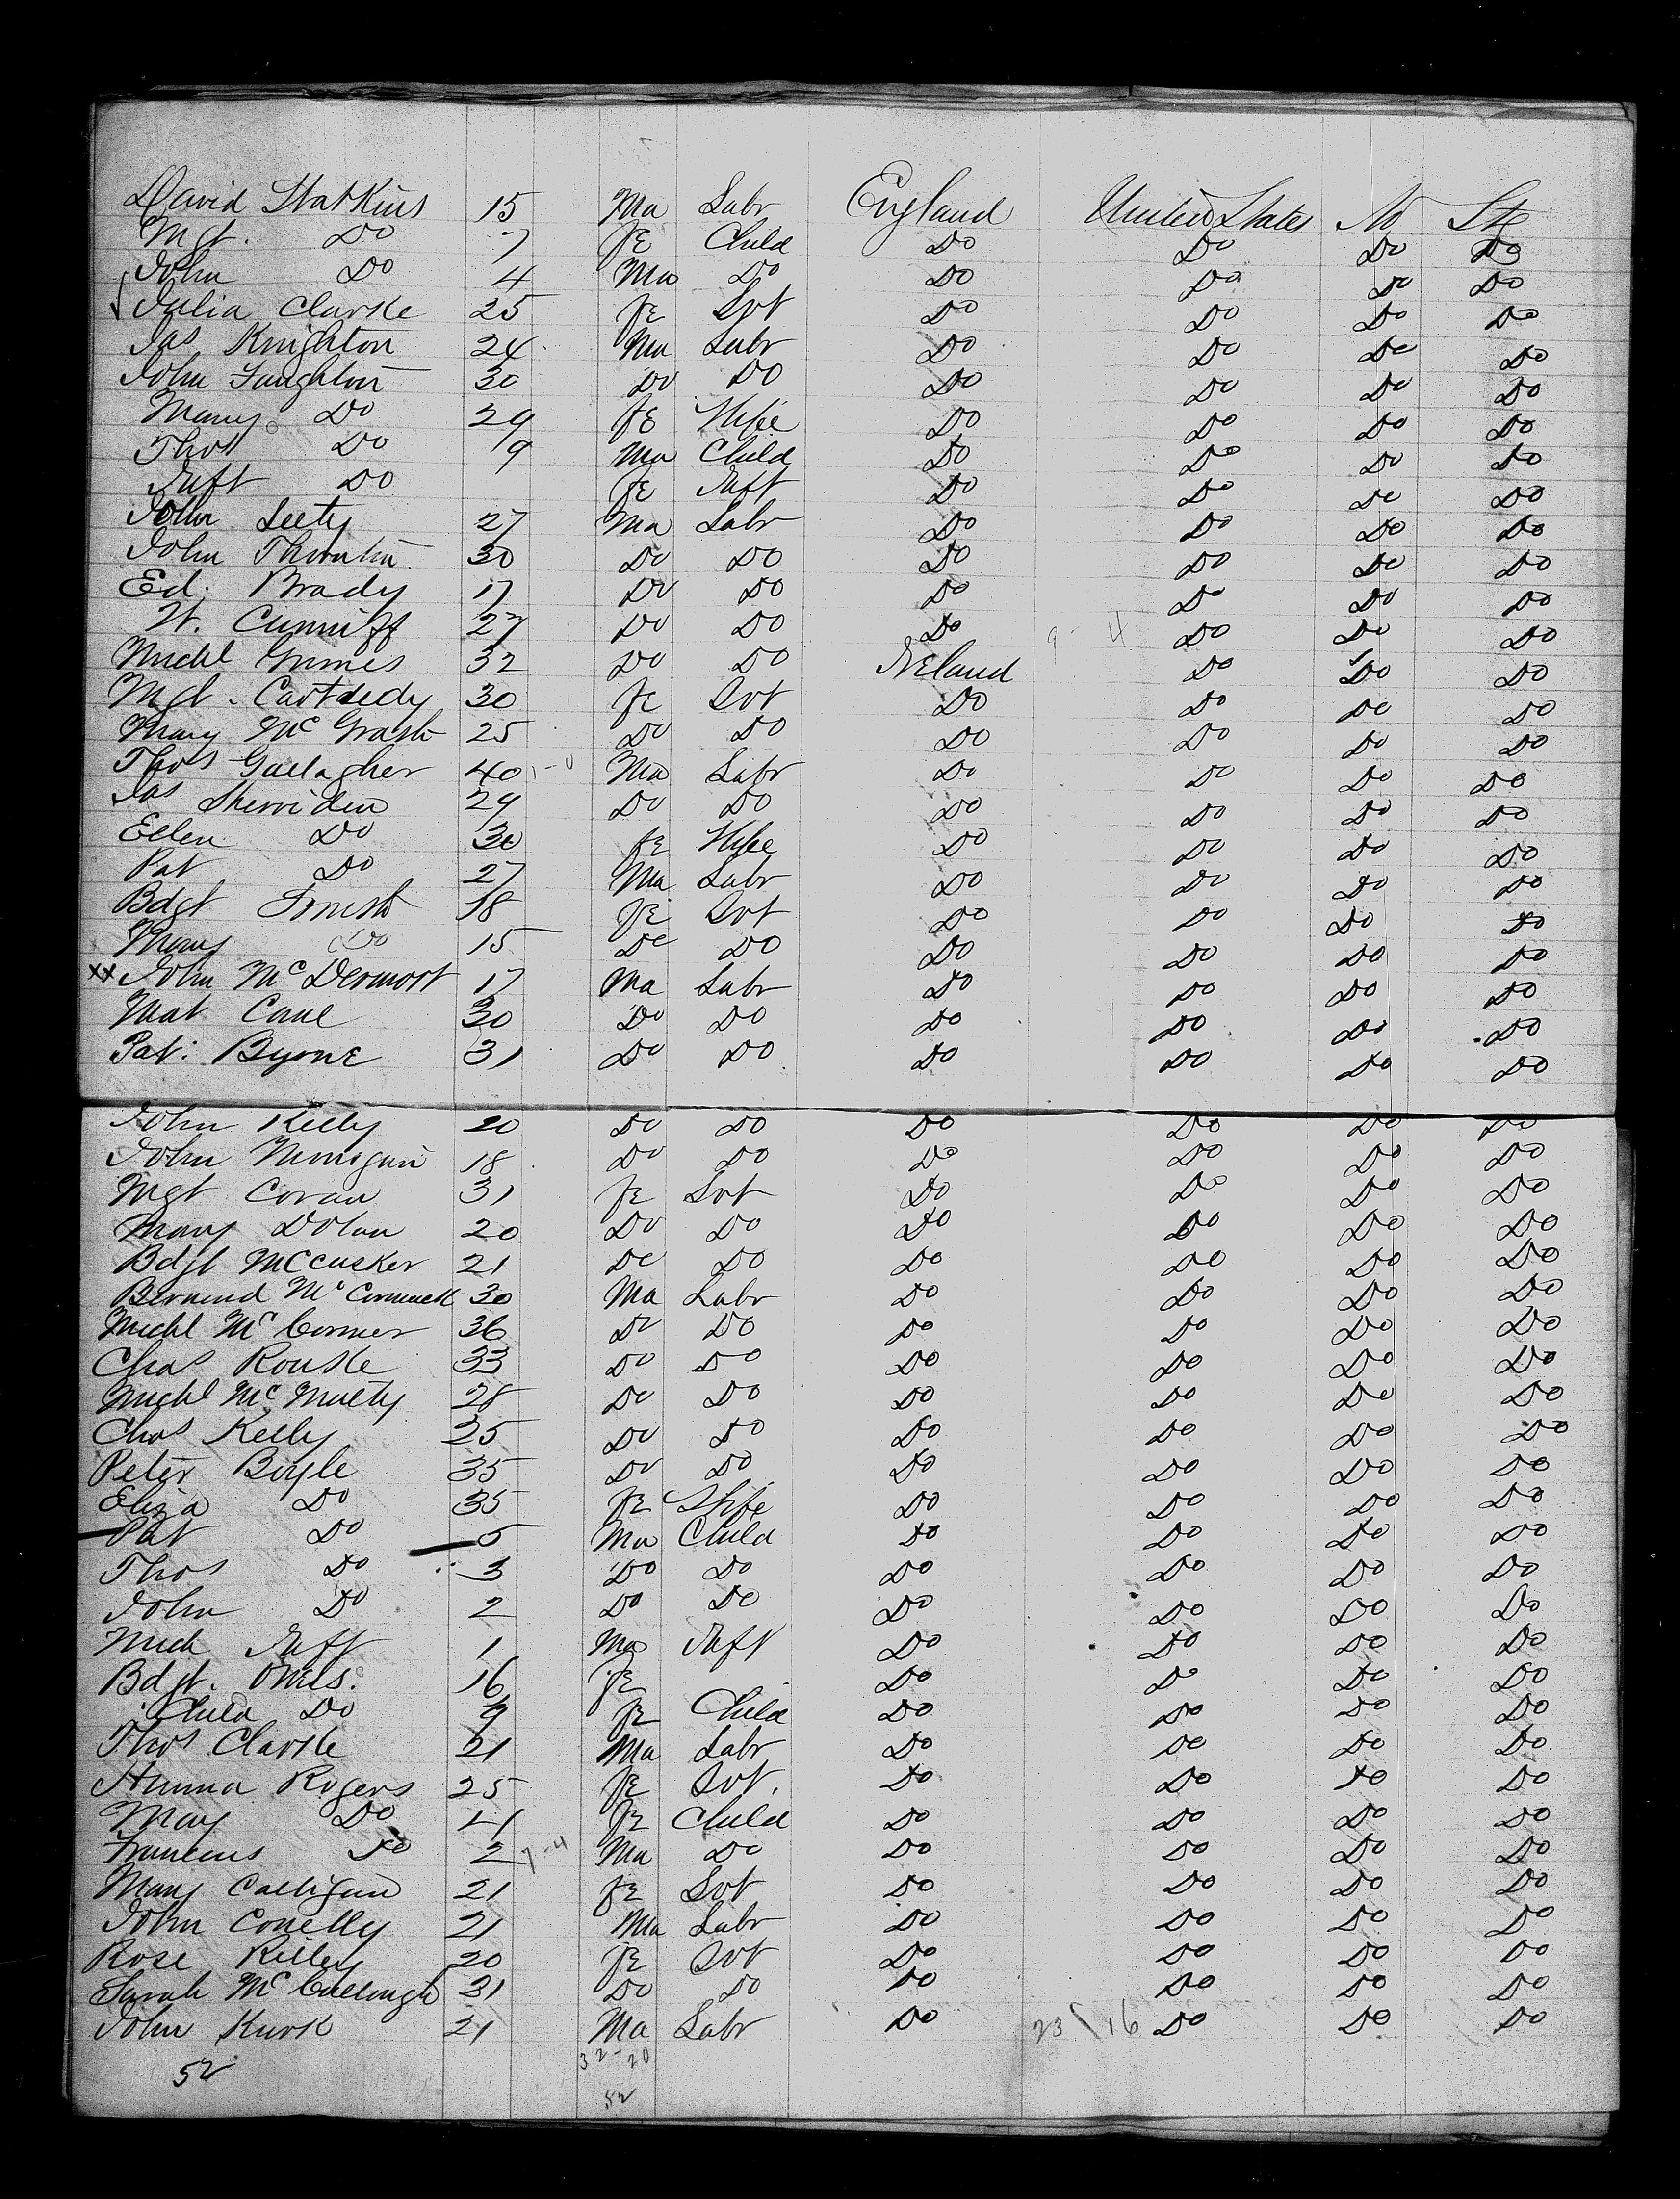 David Watkins 15 Ma Labr England United States No Stg
Mgt. Do 7 fE Child Do Do Do Do
John Do 4 Ma Do Do Do Do Do
Julia Clarke 25 fE Svt Do Do Do Do
Jas Knighton 24 Ma Labr Do Do Do Do
John Faughton 30 Do Do Do Do Do Do
Mary Do 29 fE Wife Do Do Do Do
Thos Do 9 Ma Child Do Do Do Do
Inft Do fE Inft Do Do Do Do
John Leety 27 Ma Labr Do Do Do Do
John Thornton 30 Do Do Do Do Do Do
Ed. Brady 17 Do Do Do Do Do Do
W. Cunniff 27 Do Do Do 9 - 4 Do Do Do
Michl Grimes 32 Do Do IrEland Do Do Do
Mgt. 30 fE Svt Do Do Do Do
Mary Mc Grath 25 Do Do Do Do Do Do
Thos Gallagher 40 Ma Labr Do Do Do Do
Jas Sherriden 29 Do Do Do Do Do Do
Ellen Do 30 fE Wife Do Do Do Do
Pat Do 27 Ma Labr Do Do Do Do
Bdgt 18 fE Svt Do Do Do Do
Mary Do 15 Do Do Do Do Do Do
xx John Mc Dermott 17 Ma Labr Do Do Do Do
Mat Cane 30 Do Do Do Do Do Do
Pat: ByrnE 31 Do Do Do Do Do Do
John Kelly 20 Do Do Do Do Do Do
John Monigan 18 Do Do Do Do Do Do
Mgt Coran 31 fE Svt Do Do Do Do
Mary Dolan 20 Do Do Do Do Do Do
Bdgt McCusker 21 Do Do Do Do Do Do
Bernard Mc Cormack 30 Ma Labr Do Do Do Do
Michl Mc Cormer 36 Do Do Do Do Do Do
Chas Rourke 33 Do Do Do Do Do Do
Michl Mc Multy 28 Do Do Do Do Do Do
Chas Kelly 25 Do Do Do Do Do Do
Peter Boyle 35 Do Do Do Do Do Do
Eliza Do 35 fE Wife Do Do Do Do
Pat Do 5 Ma Child Do Do Do Do
Thos Do 3 Do Do Do Do Do Do
John Do 2 Do Do Do Do Do Do
Mich Inft 1 Ma Inft Do Do Do Do
Bdgt. 16 fE Do Do Do Do
Child Do 9 fE Child Do Do Do Do
Thos Clarke 21 Ma Labr Do Do Do Do
Hanna Rogers 25 fE Svt. Do Do Do Do
May Do 11 fE Child Do Do Do Do
Do 2 7-4 Ma Do Do Do Do Do
Mary Calligan 21 fE Svt Do Do Do Do
John Conelly 21 Ma Labr Do Do Do Do
Rose Rilley 20 fE Svt Do Do Do Do
Sarah Mc Cullough 31 Do Do Do Do Do Do
John Kirk 21 Ma Labr Do 23 / 16 Do Do Do
52 32-20
52